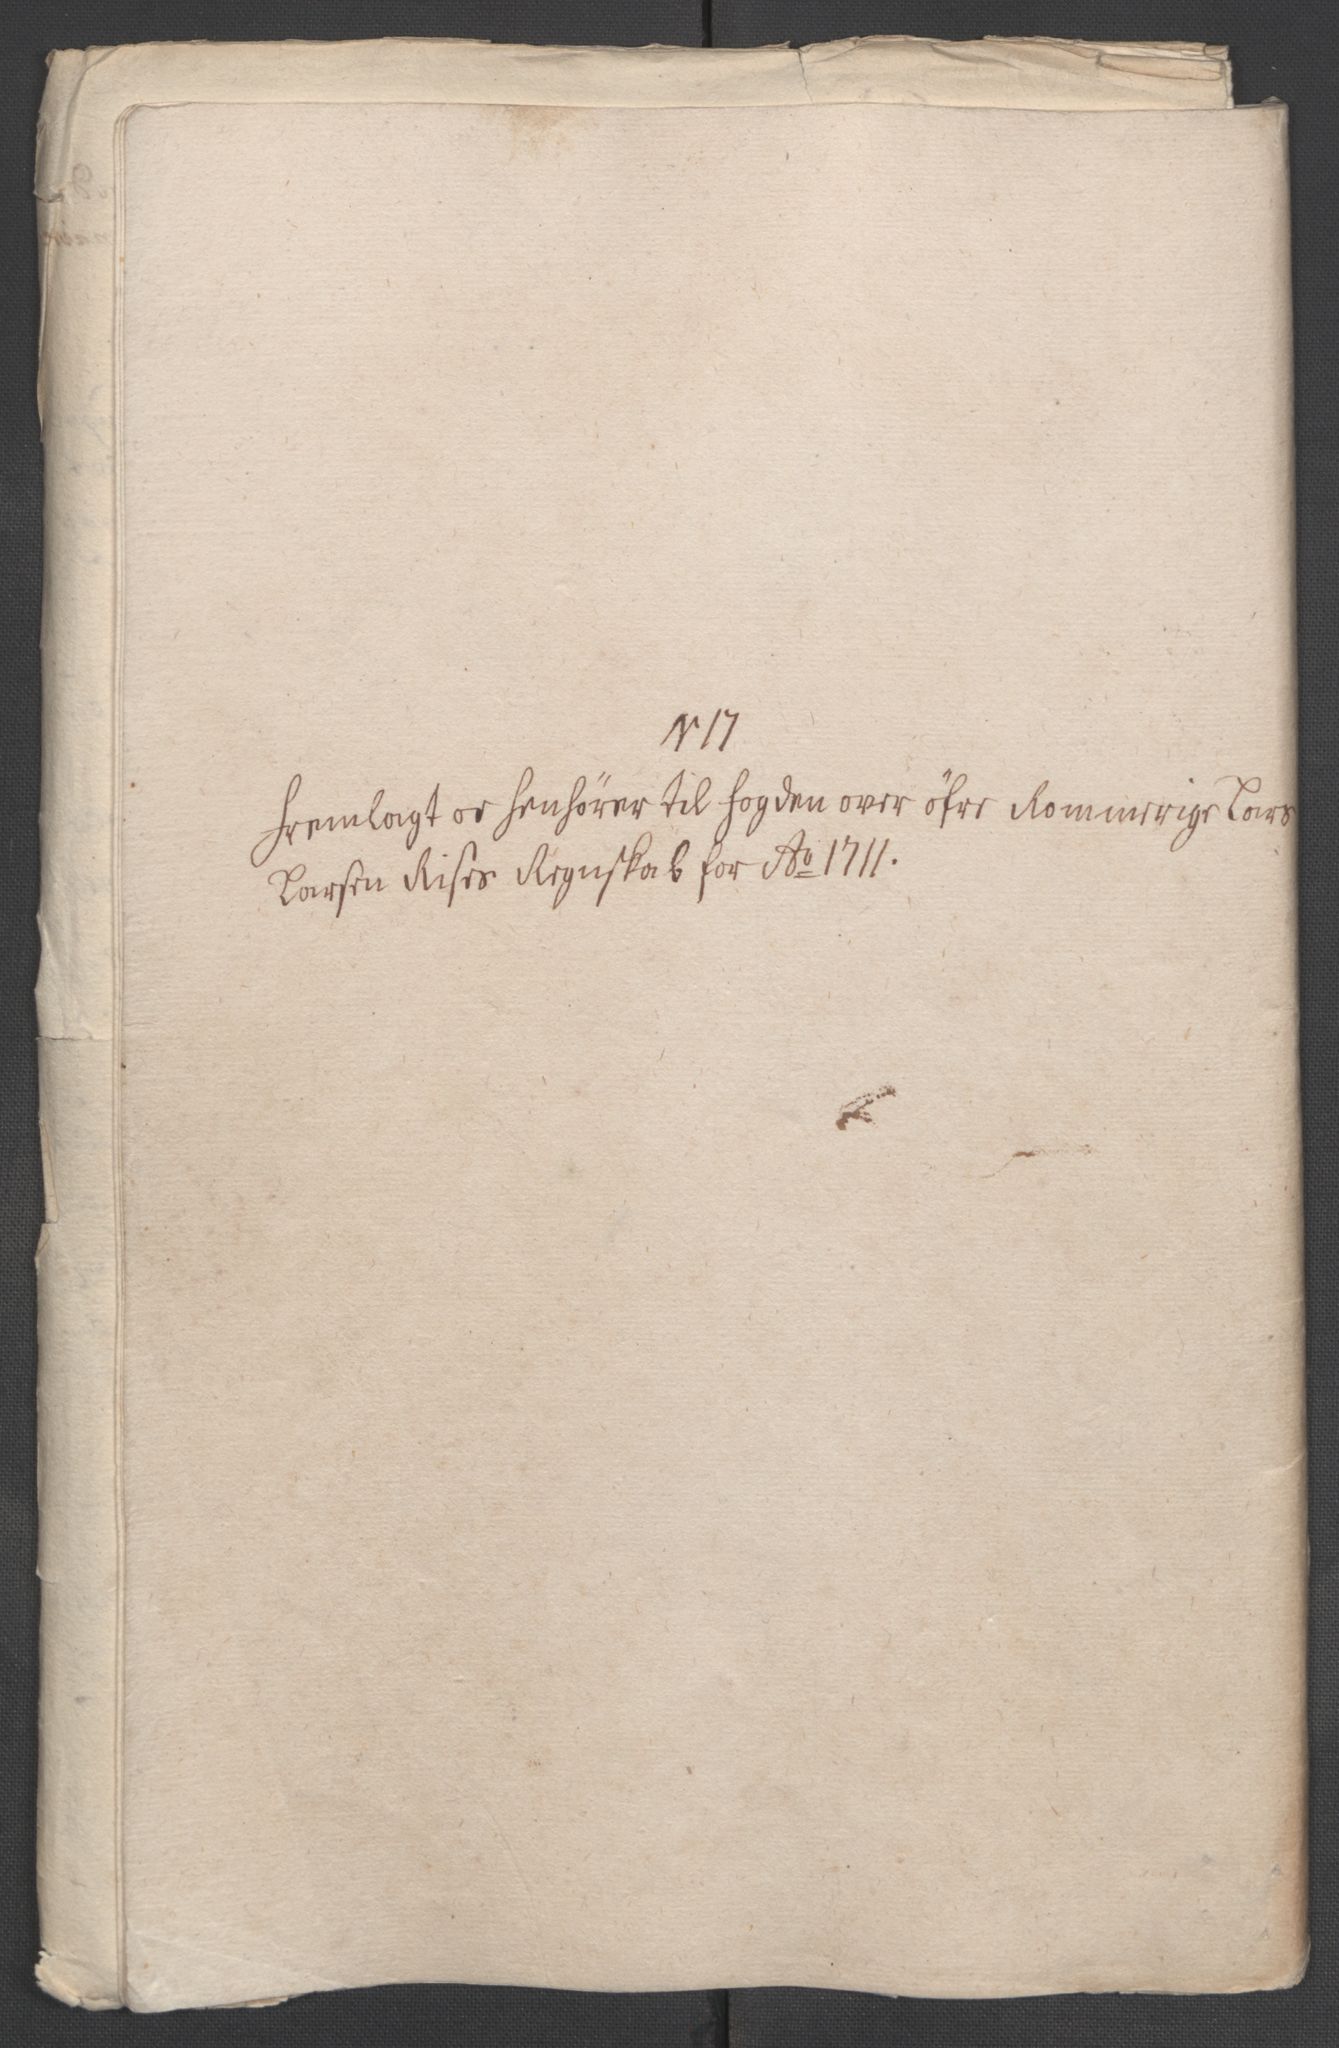 N 17
fremlagt oc henhörer til fogden over öfre Rommerige Lars
Larsen Rises Regnskab for Ao 1711.